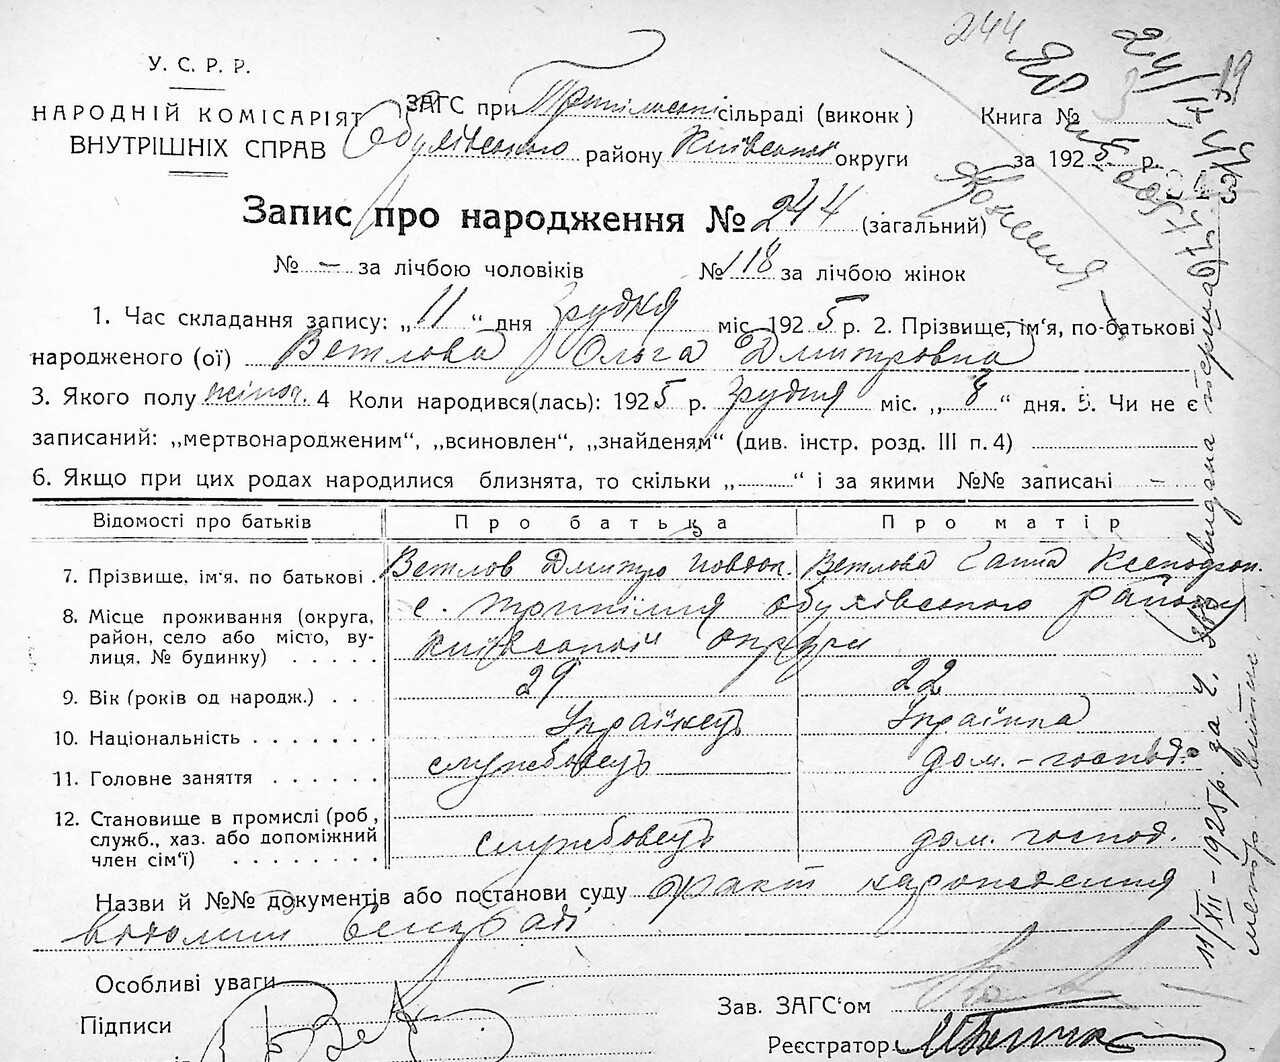 У. С. Р. Р.
НАРОДНІЙ КОМІСАРІЯТ
ВНУТРІШНІХ СПРАВ
ЗАГС при Трипільській сільраді (виконк)
Обухівського району Київської округи
244
ЯР
Книга № 3
за 1925 р.
Запис про народження № 244 (загальний)
№ – за лічбою чоловіків № 118 за лічбою жінок
1. Час складання запису: „11“ дня Грудня міс. 1925 р. 2. Прізвище, ім'я, по-батькові
народженого (ої) Ветлова Ольга Дмитровна
3. Якого полу жіноч. 4 Коли народився(лась): 1925 р. Грудня міс. „8“ дня. 5. Чи не є
записаний: „мертвонародженим“, „всиновлен“, „знайденям“ (див. інстр. розд. III п. 4)
6. Якщо при цих родах народилися близнята, то скільки „ “ і за якими №№ записані –
Відомості про батьків Про батька Про матір
7. Прізвище, ім'я, по батькові . Ветлов Дмитро Ветлова Ганна Ксенофон.
8. Місце проживання (округа, с. Трипілля Обухівського району
район, село або місто, ву- Київської округи
лиця, № будинку) . . . . .
9. Вік (років од народж.) . . . 29 22
10. Національність . . . . . . . Українець Українка
11. Головне заняття . . . . . . службовець дом.-господ.
12. Становище в промислі (роб,
служб., хаз. або допоміжний службовець дом. господ.
член сім'ї) . . . . . . . .
Назви й №№ документів або постанови суду факт народження
відомий сельраді
Особливі уваги
Підписи
Зав. ЗАГС'ом
Реєстратор
11/XII – 1925р. за ч. видана